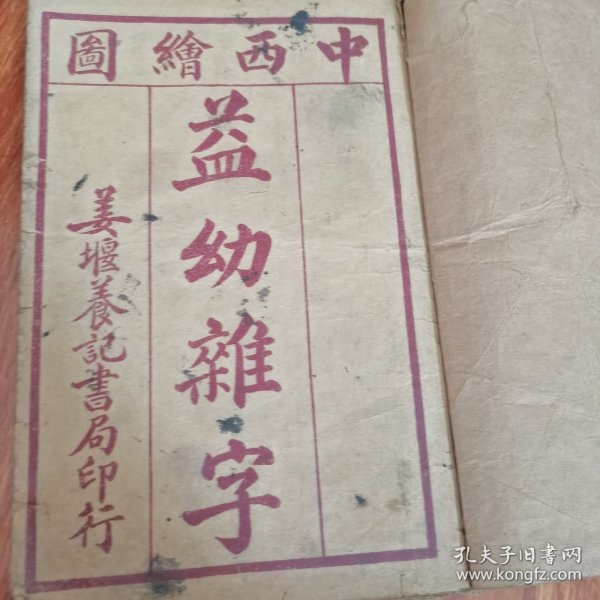 中西繪圖
益幼雜字
姜堰養記書局印行
孔夫子旧书网
www.kongfz.com